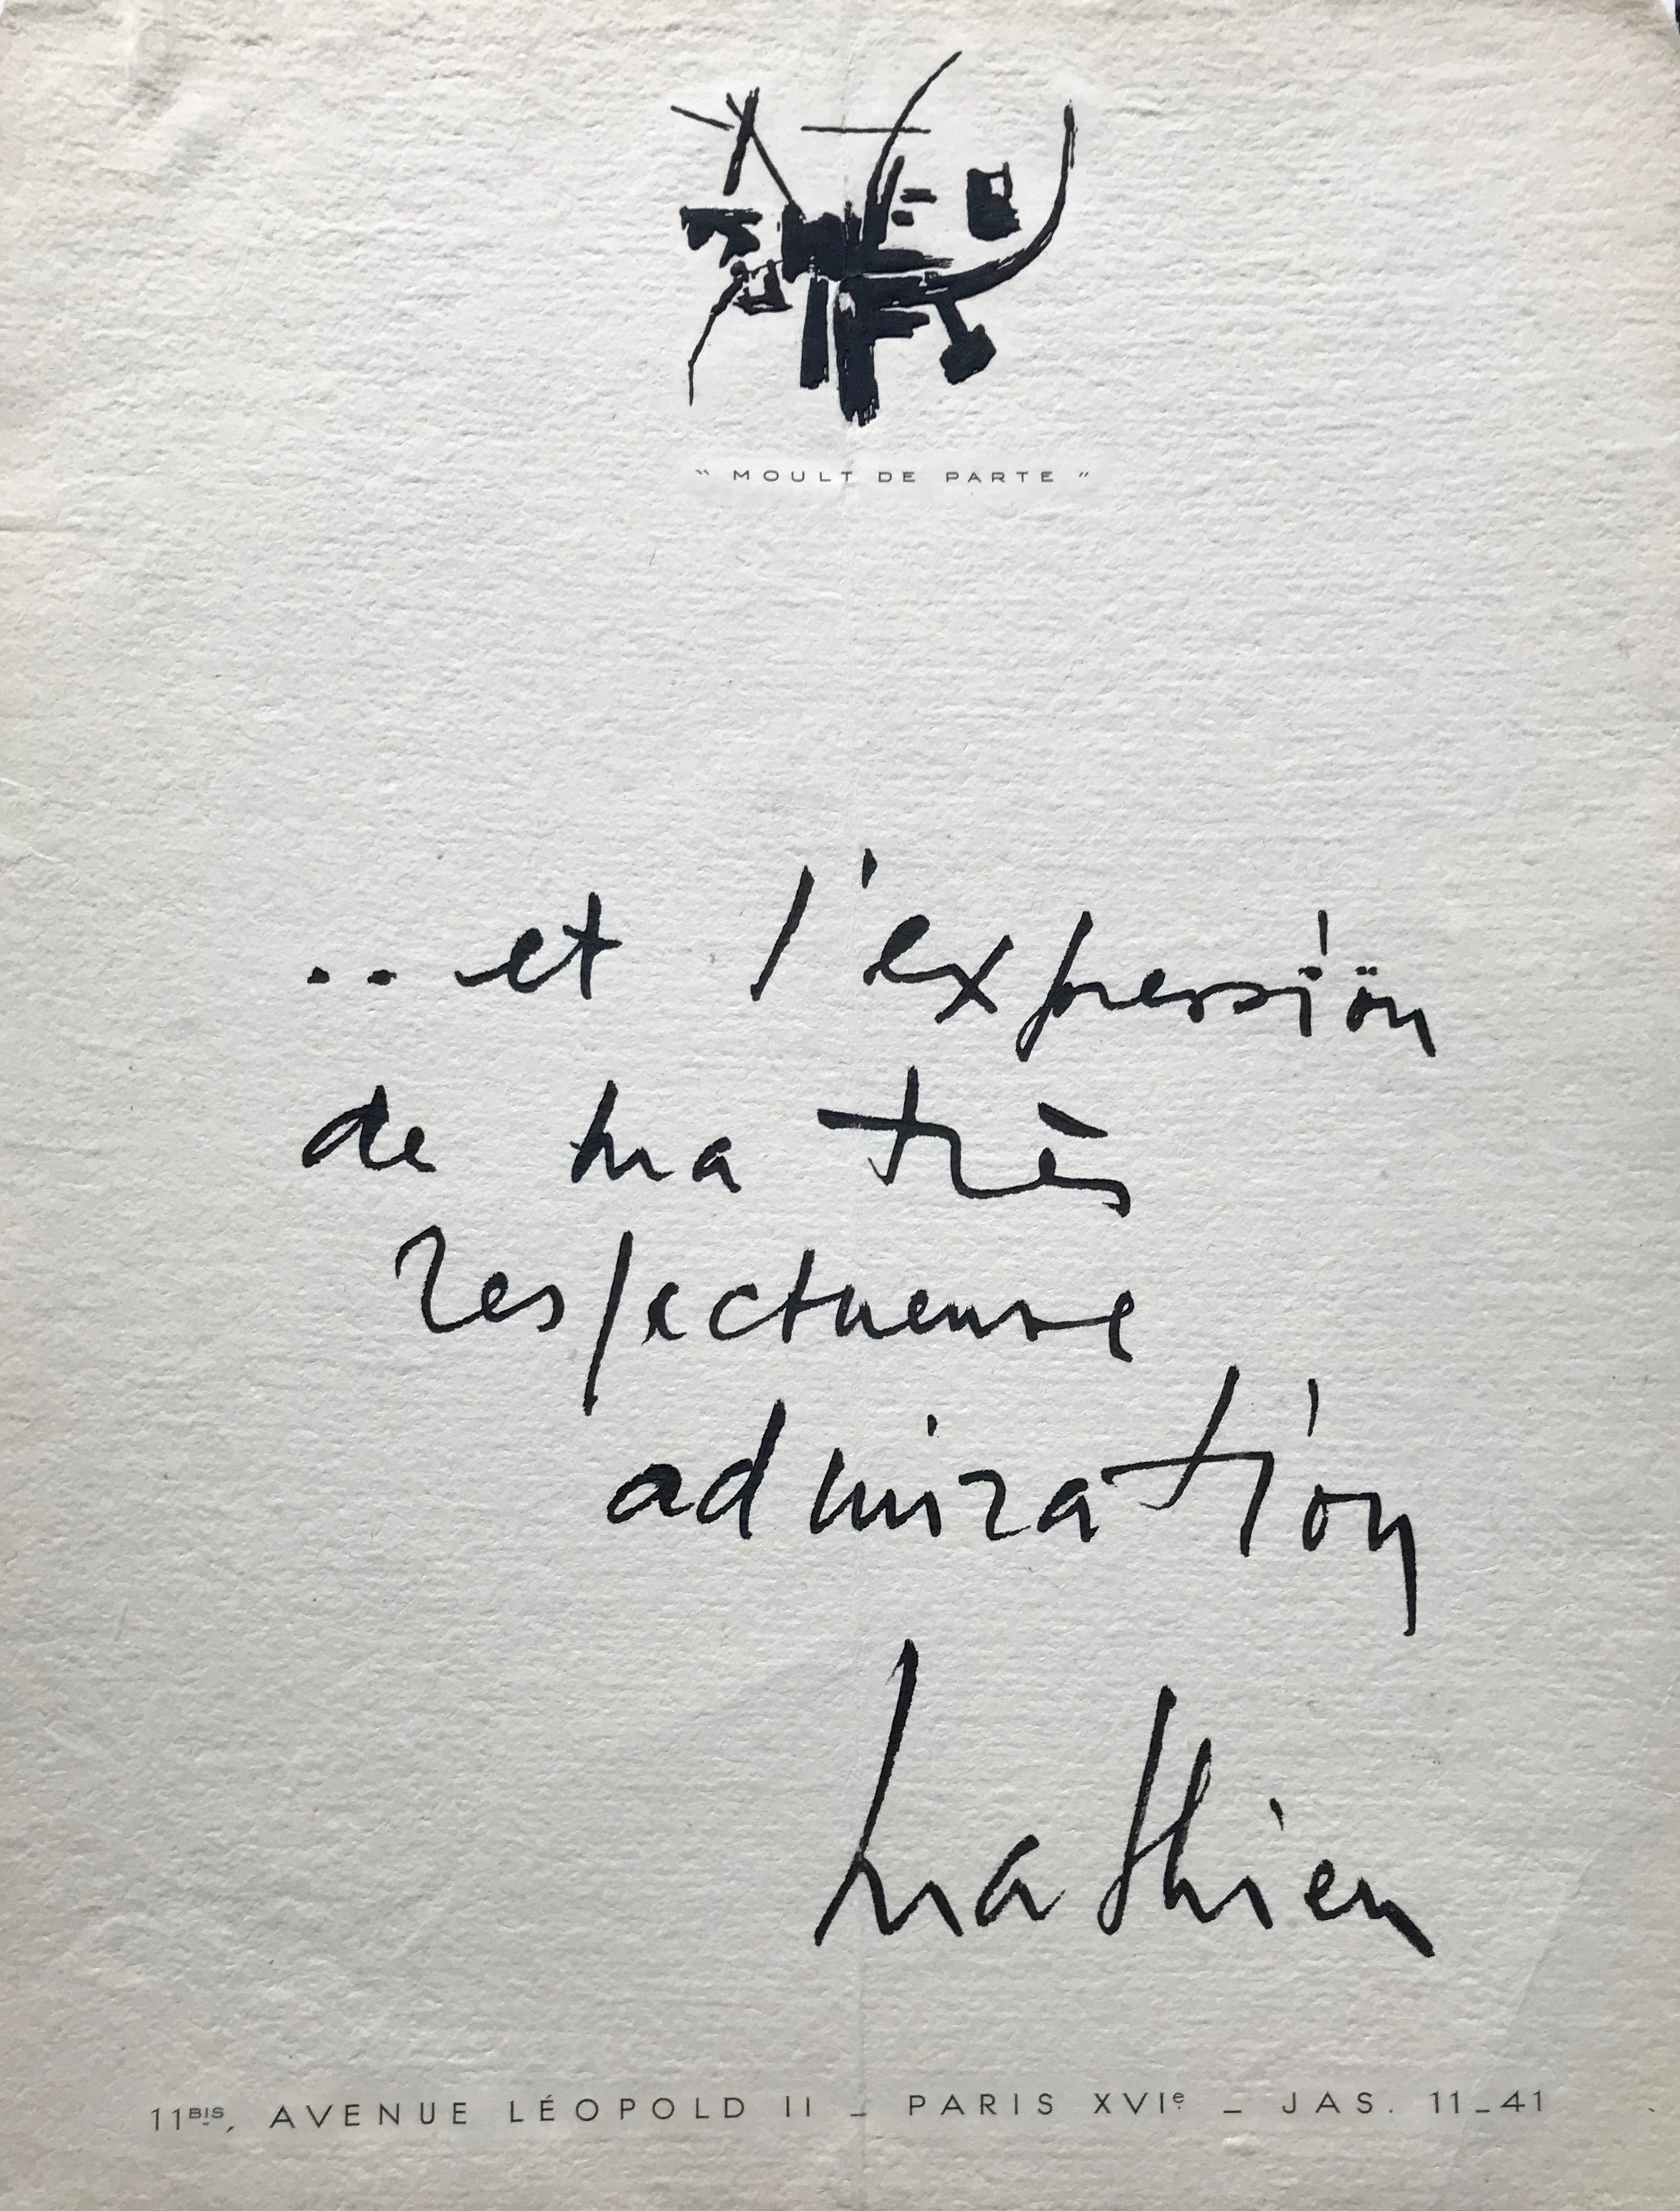 “ MOULT DE PARTE ”
.. et l'expression
de ma très
respectueuse
admiration
Mathieu
11BIS, AVENUE LÉOPOLD II _ PARIS XVIe _ JAS. 11_41